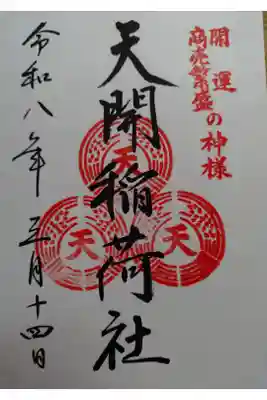 開運
商売繁盛の神様
天開稲荷社
天
天
天
令和八年三月十四日